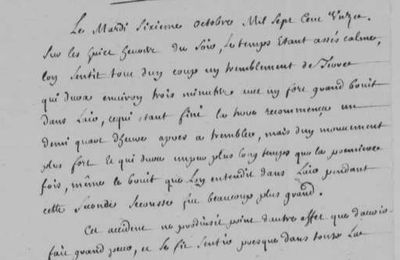 Le Mardi Sixieme Octobre Mil Sept Cent Unze.
Sur les huict heures du Soir, le temps Etant assés calme,
lon Sentit tout dun coup un tremblement de Terre
qui dura environ trois minuttes avec un fort grand bruit
dans Lair, cequi etant fini la terre recommença un
demi quart dheure apres a trembler, mais dun mouvement
plus fort et qui dura unpeu plus long temps que la premiere
fois, même le bruit que Lon entendit dans Lair pendant
cette Seconde Secousse fut beaucoup plus grand.
Cet accident ne produisit point dautre effet que davoir
fait grand peur, et se fit Sentir presque dans toute La